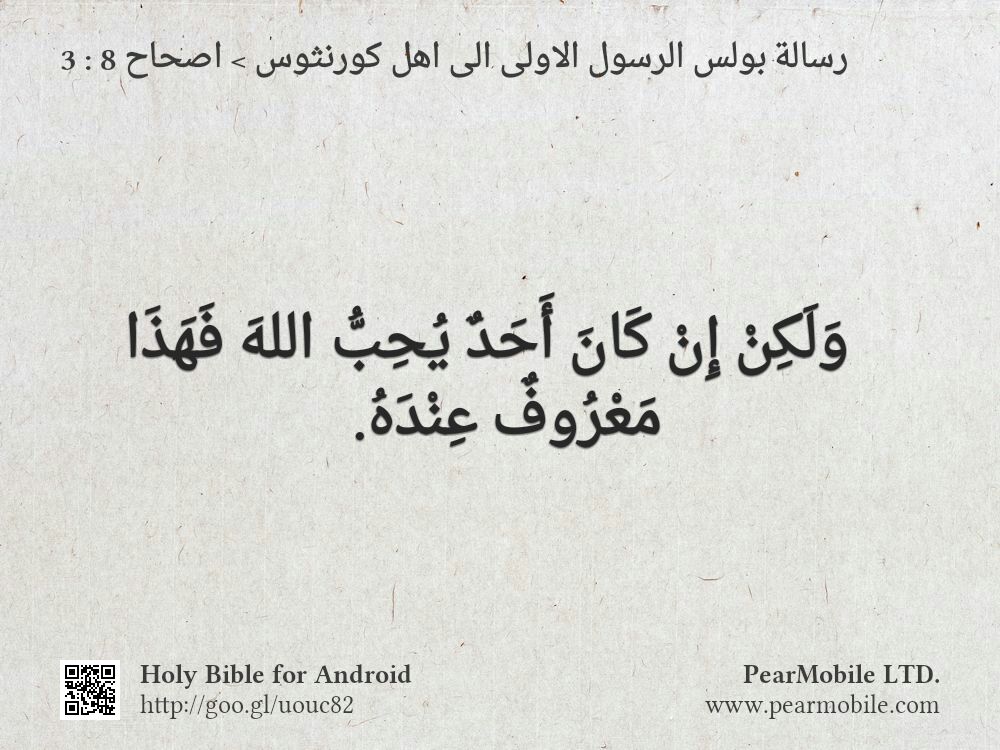 رسالة بولس الرسول الاولى الى اهل كورنثوس > اصحاح 8 : 3
وَلَكِنْ إِنْ كَانَ أَحَدٌ يُحِبُّ اللهَ فَهَذَا
مَعْرُوفٌ عِنْدَهُ.
Holy Bible for Android
http://goo.gl/uouc82
PearMobile LTD.
www.pearmobile.com